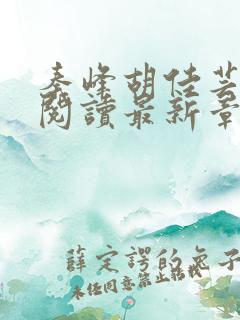 秦峰胡佳芸
閱讀最新章
薛定諤的兔子
未经同意禁止转载